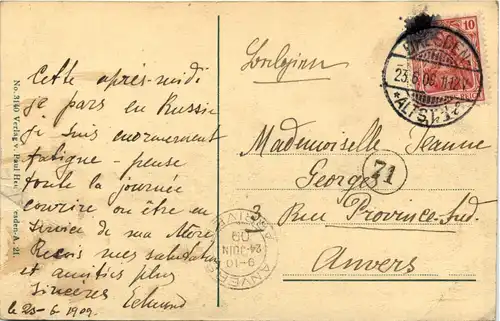 No. 3140 Verlag v. Paul He
esden-A. 21.
Belgien
10
DRESDEN
23.6.09. 11-12
*ALTST.
Cette après-midi
je pars en Russie
je suis enormement
fatigue - pense
toute la journée
courrire ou être en
service de ma Mère
Recois mes salutation
et amitiés plus
sincères
le 23-6 1909.
Mademoiselle Jeanne
Georges
71
3 Rue Province-Sud.
Anvers
ANVERS
9-10
24 JUIN
09
ARRIVEE